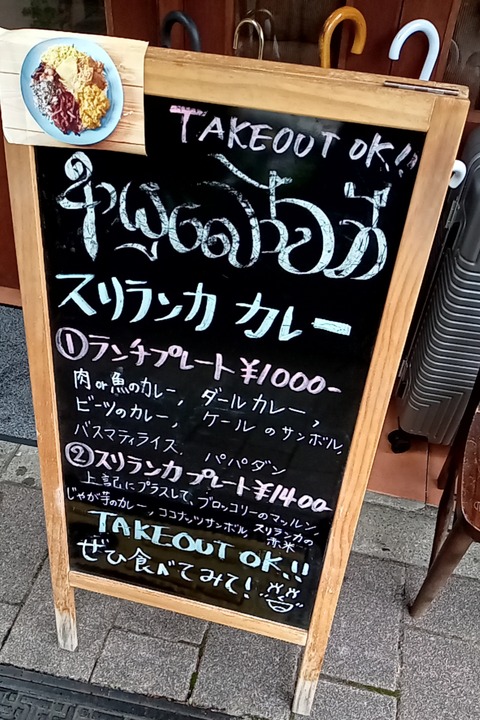 TAKEOUT OK!!
ආයුබෝවන්
スリランカ カレー
①ランチプレート ¥1000-
肉or魚のカレー, ダールカレー,
ビーツのカレー, ケールのサンボル,
バスマティライス, パパダン
②スリランカプレート ¥1400
上記にプラスして, ブロッコリーのマッルン,
じゃが芋のカレー, ココナッツサンボル, スリランカの
赤米
TAKEOUT OK!!
ぜひ食べてみて!